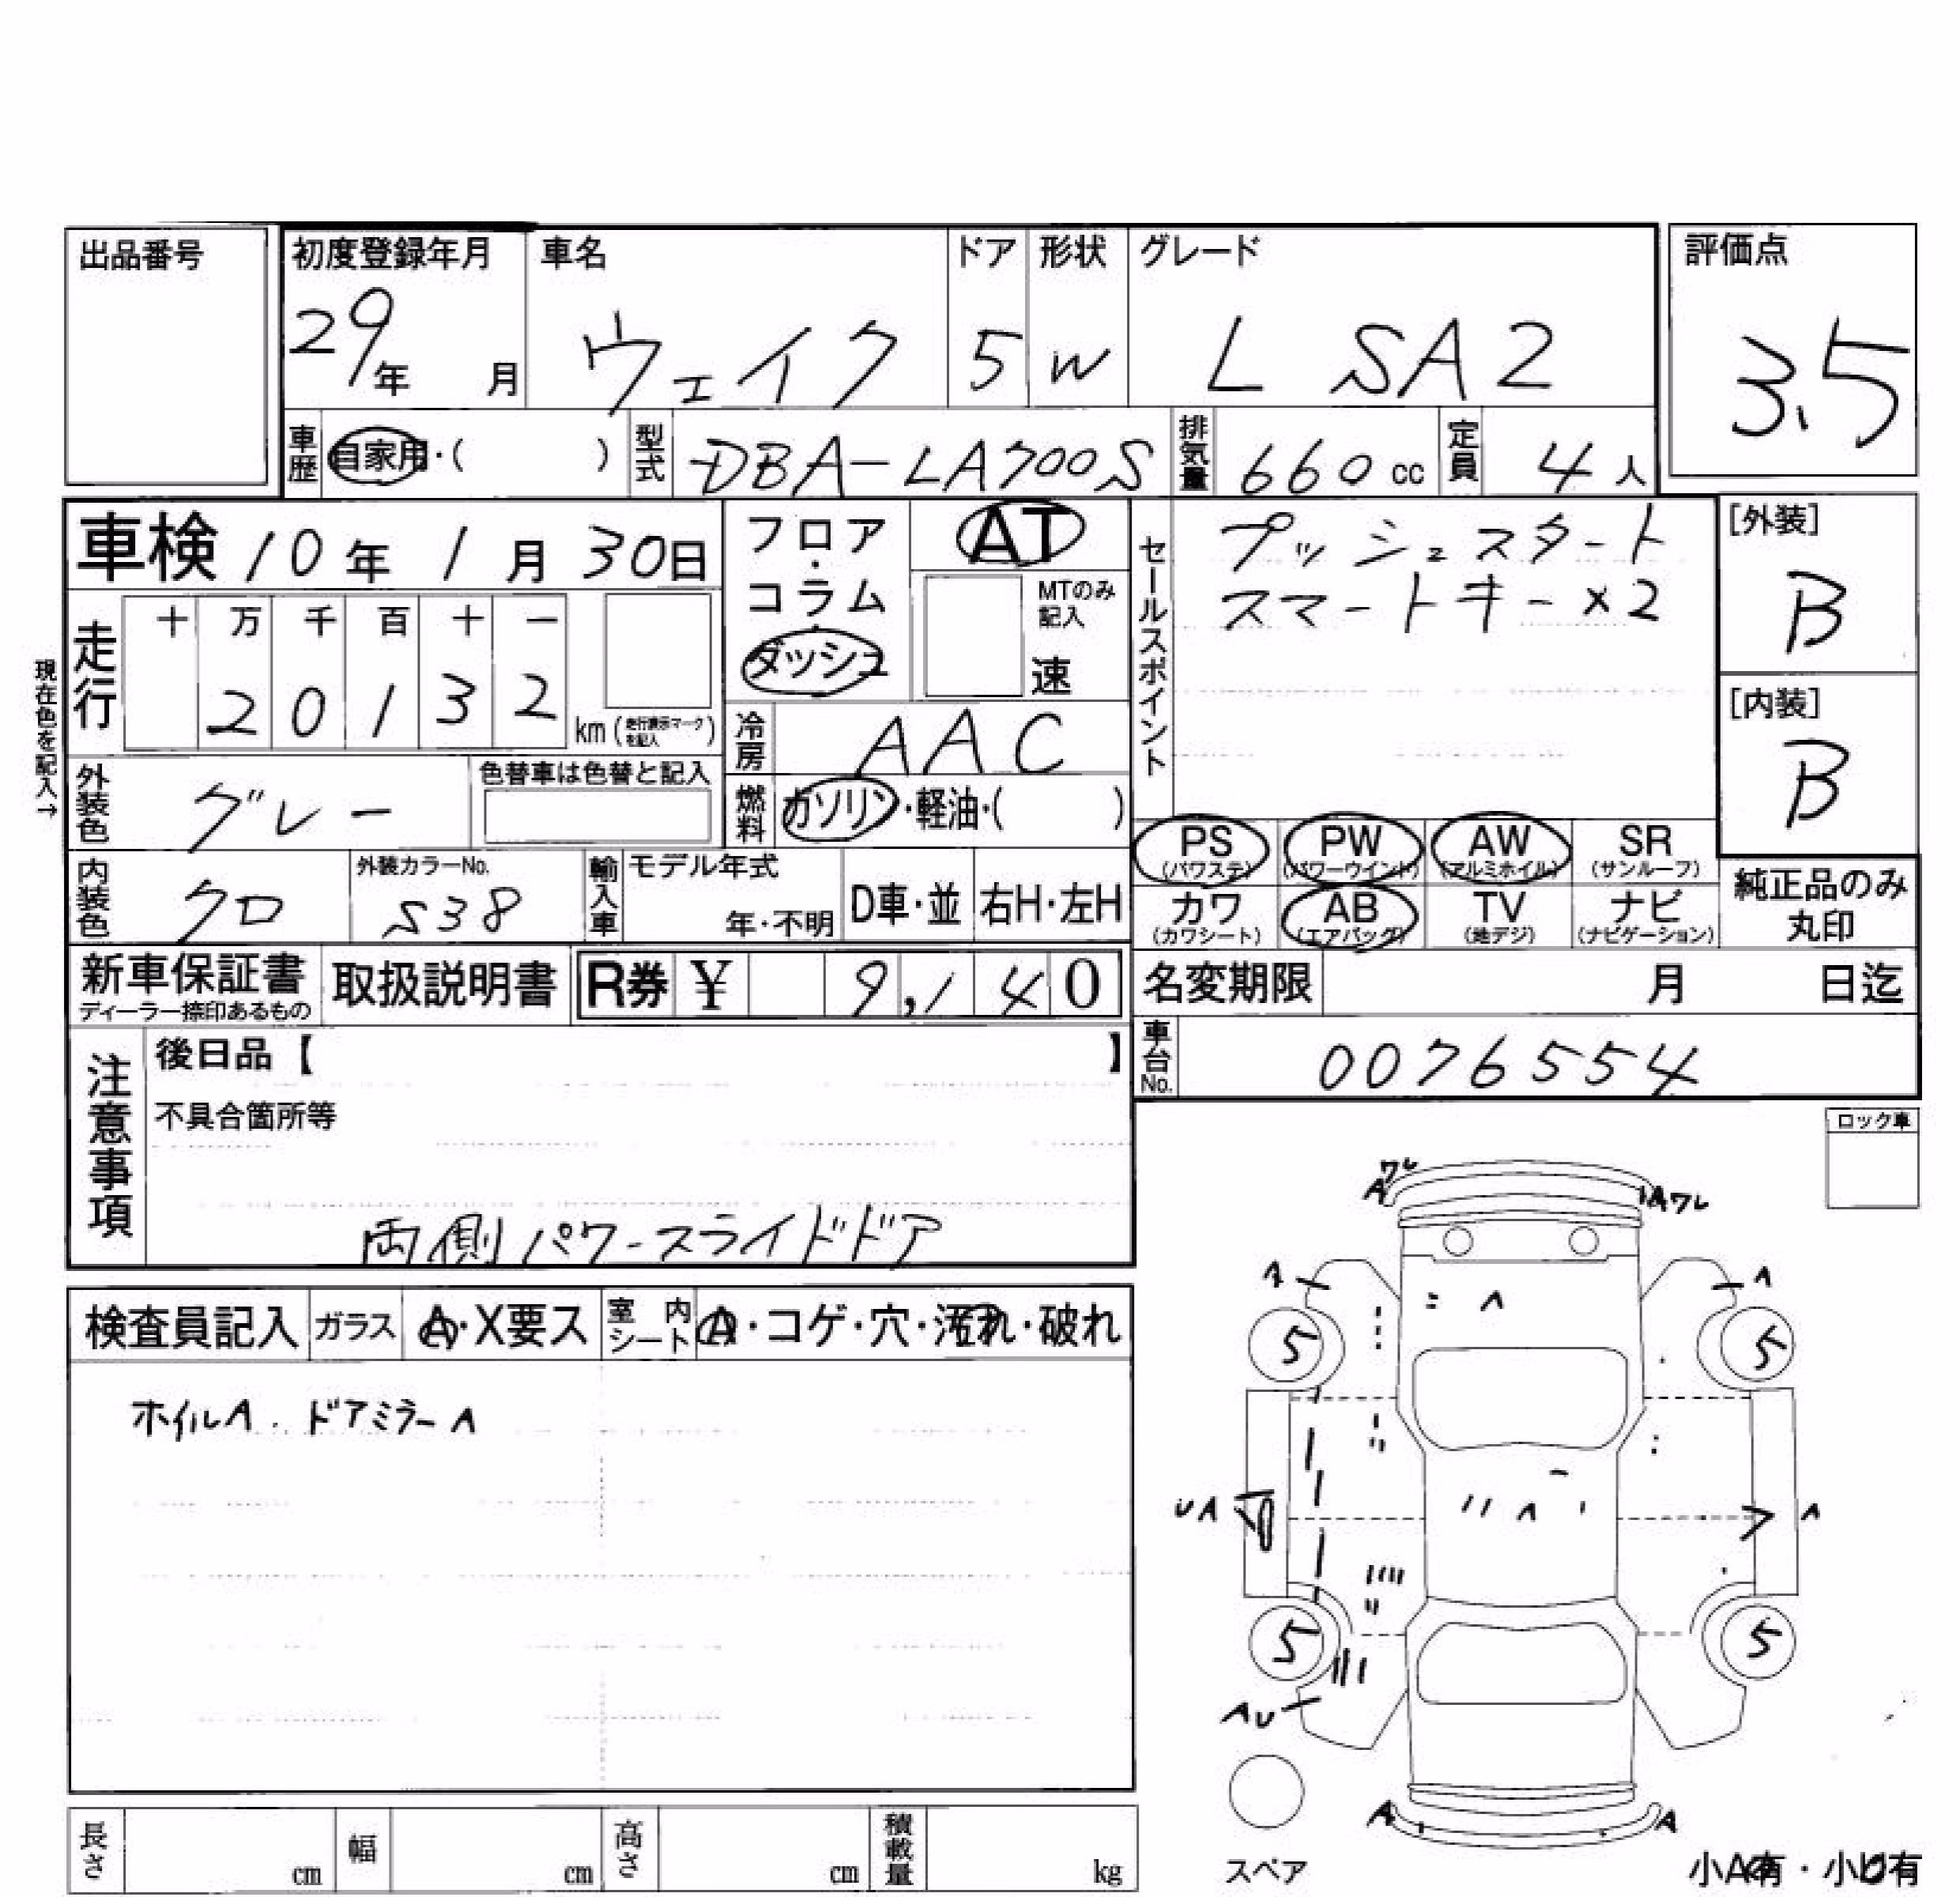 出品番号
初度登録年月
29年 月
車名
ウェイク
ドア
5
形状
W
グレード
L SA2
評価点
3.5
車歴
自家用・( )
型式
DBA-LA700S
排気量
660cc
定員
4人
車検 10年 1月 30日
フロア・コラム・ダッシュ
AT
MTのみ記入
速
セールスポイント
プッシュスタート
スマートキー×2
[外装]
B
[内装]
B
現在色を記入→
走行
十 万 千 百 十 一
2 0 1 3 2
km (走行表示マークを記入)
冷房
AAC
外装色
グレー
色替車は色替と記入
燃料
ガソリン・軽油・( )
内装色
クロ
外装カラーNo.
S38
輸入車
モデル年式
年・不明
D車・並
右H・左H
PS (パワステ)
PW (パワーウインド)
AW (アルミホイル)
SR (サンルーフ)
カワ (カワシート)
AB (エアバッグ)
TV (地デジ)
ナビ (ナビゲーション)
純正品のみ丸印
新車保証書
ディーラー捺印あるもの
取扱説明書
R券 ¥ 9,140
名変期限 月 日迄
注意事項
後日品【 】
不具合箇所等
両側パワースライドドア
車台No.
0076554
ロック車
検査員記入
ガラス
A・X要ス
室内シート
A・コゲ・穴・汚れ・破れ
ホイルA. ドアミラーA
ワレ
A
Aワレ
A
A
A
5
5
UA
A
A
5
5
AU
A
A
スペア
長さ cm
幅 cm
高さ cm
積載量 kg
小A有・小U有